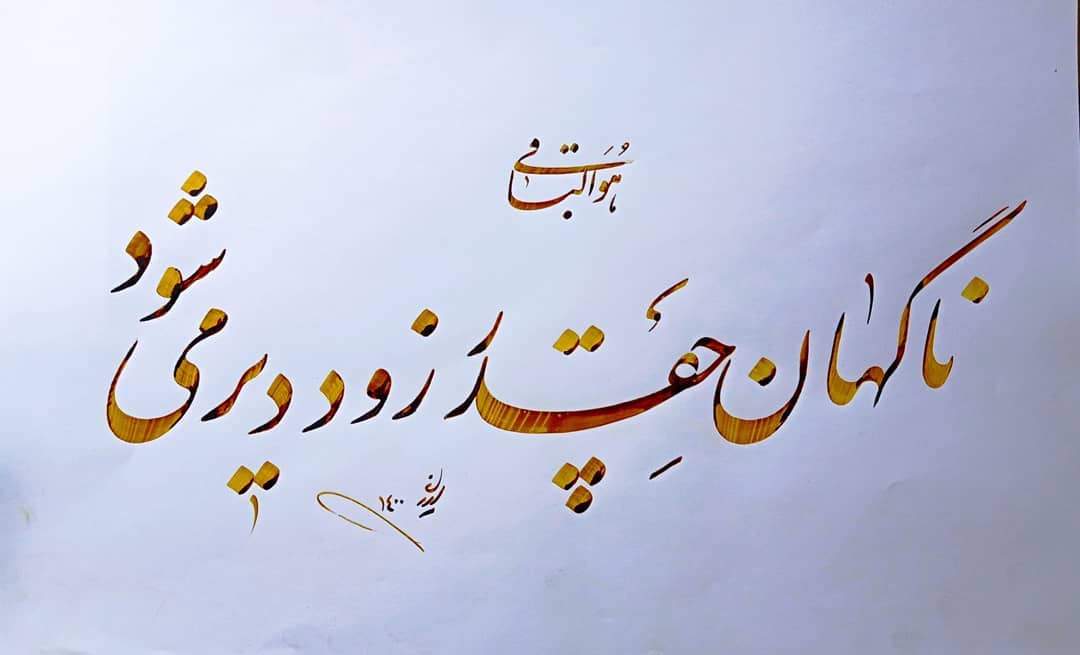 هُوَ الباقی
ناگهان چِقَدَر زود دیر می‌شود
۱۴۰۰